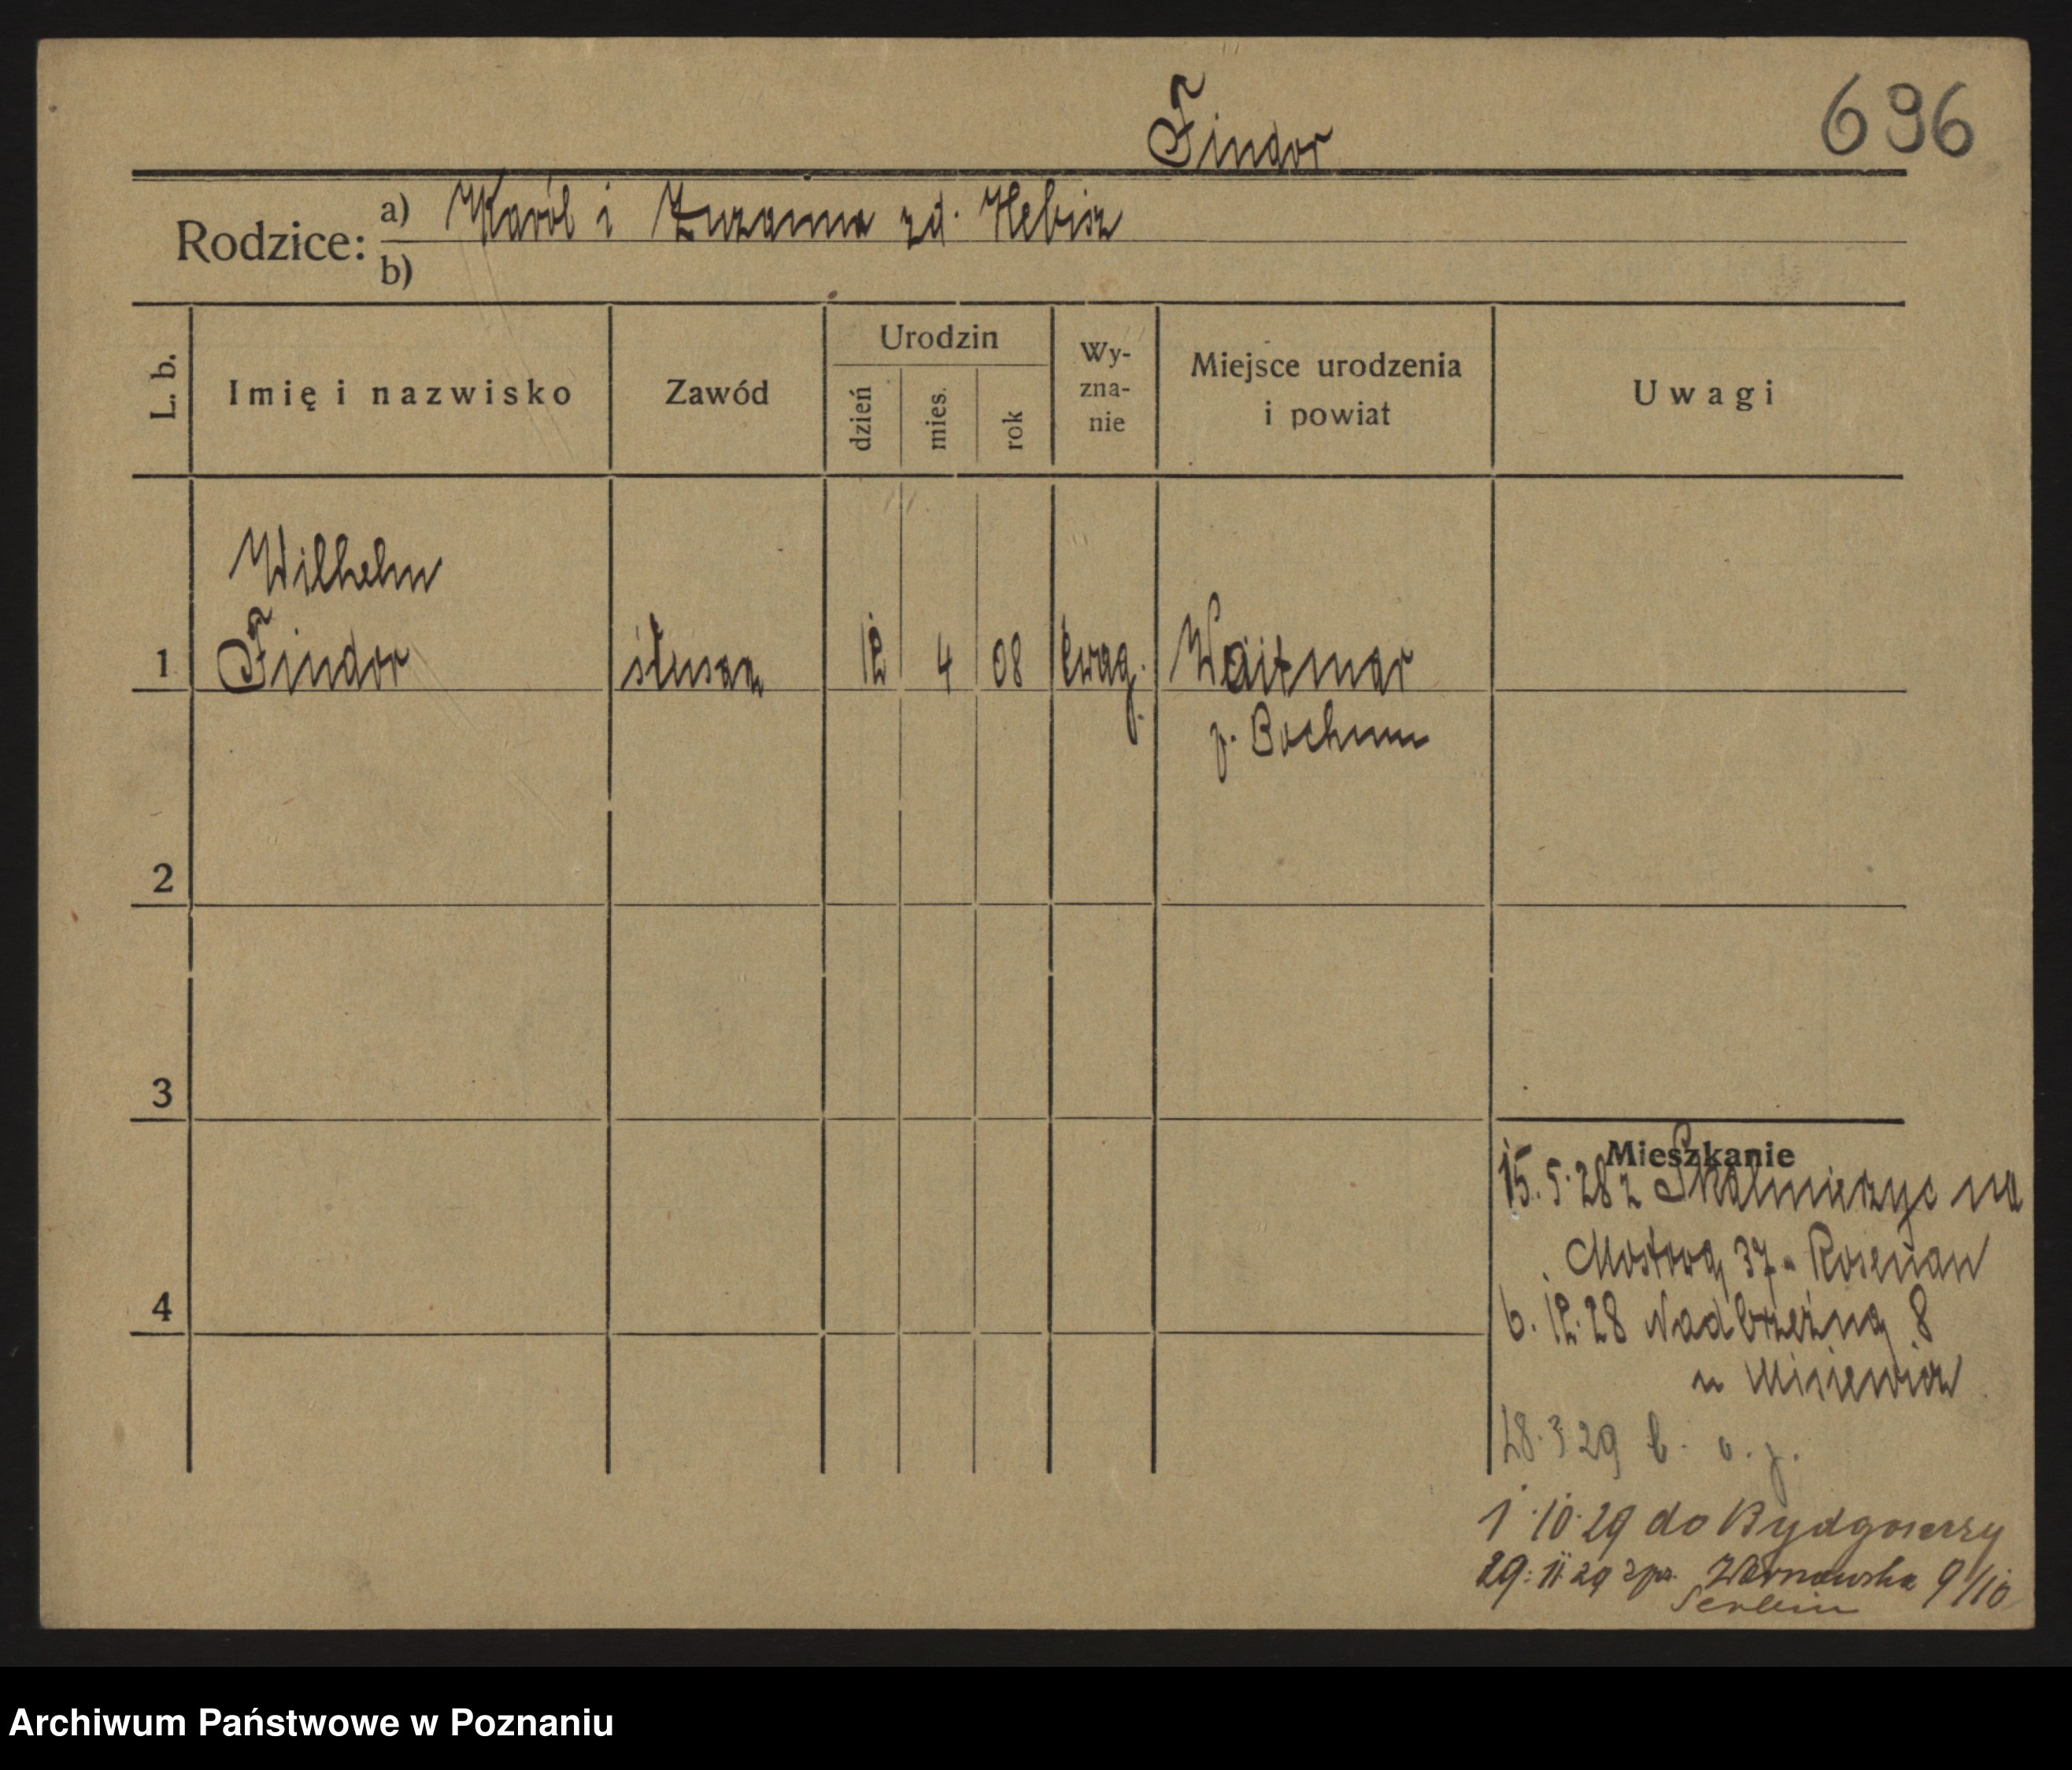 Findor
696
Rodzice: a) Karól i Zuzanna zd. Hebisz
b)
L. b.
Imię i nazwisko
Zawód
Urodzin
dzień
mies.
rok
Wy-
zna-
nie
Miejsce urodzenia
i powiat
Uwagi
Wilhelm
1 Findor ślusarz 12 4 08 ewag. Waitmar
p. Bochum
2
3
4
Mieszkanie
15.5.28 z Skalmierzyc na
Mostową 37 - Rosenau
6.12.28 Nadbrzeżną 8
u Misiewicz
28.3.29 b. o. j.
1.10.29 do Bydgoszczy
29.11.29 zpr. 9/10
Archiwum Państwowe w Poznaniu